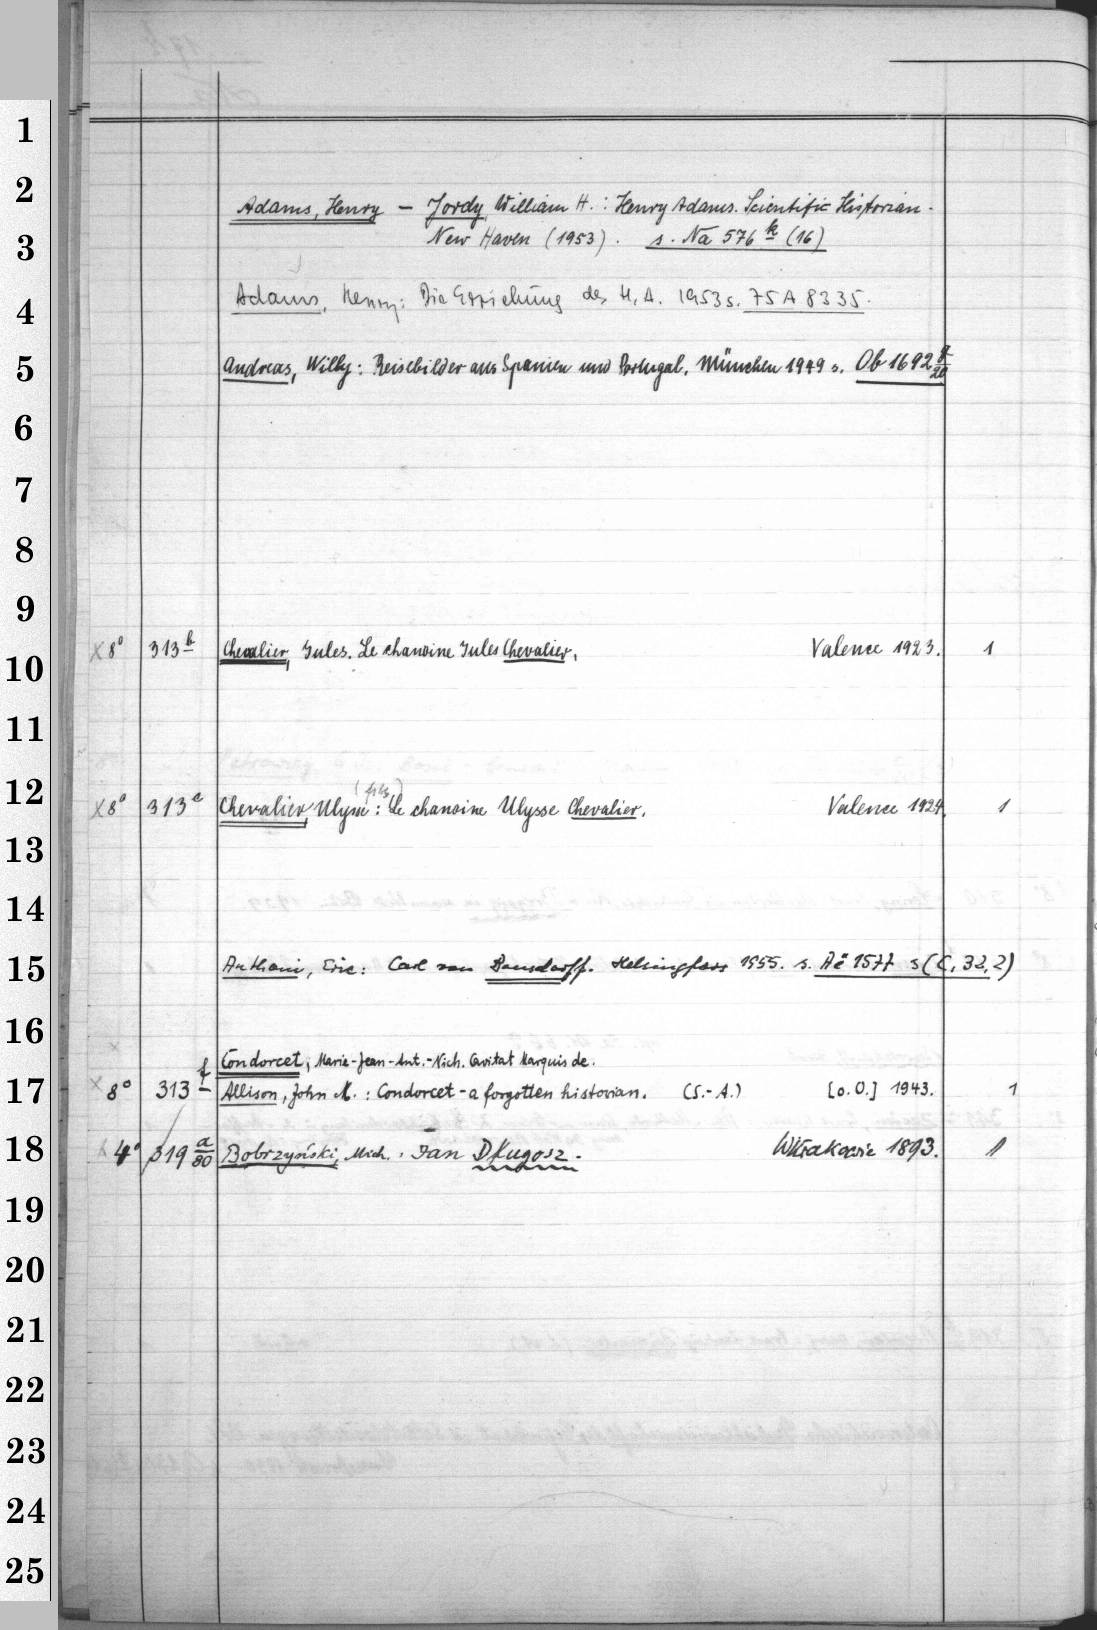 1
2
Adams, Henry – Jordy, William H.: Henry Adams. Scientific Historian.
3
New Haven (1953). s. Na 576 k (16)
4
Adams, Henry: Die Erziehung des H. A. 1953 s. 75 A 8335.
5
Andreas, Willy: Reisebilder aus Spanien und Portugal. München 1949 s. Ob 1692 /20
6
7
8
9
10
X 8° 313 b Chevalier, Jules. Le chanoine Jules Chevalier. Valence 1923. 1
11
12
(fils)
X 8° 313 c Chevalier, Ulysse: Le chanoine Ulysse Chevalier. Valence 1924. 1
13
14
15
Anthoni, Eric: Carl von Bonsdorff. Helsingfors 1955. s. Ac 1577 s (C, 32, 2)
16
Condorcet, Marie-Jean-Ant.-Nich. Caritat Marquis de.
17
X 8° 313 f Allison, John M.: Condorcet - a forgotten historian. (S.-A.) [o. O.] 1943. 1
18
4° 319 a/80 Bobrzyński, Mich. Jan Długosz. W Krakowie 1893. 1
19
20
21
22
23
24
25